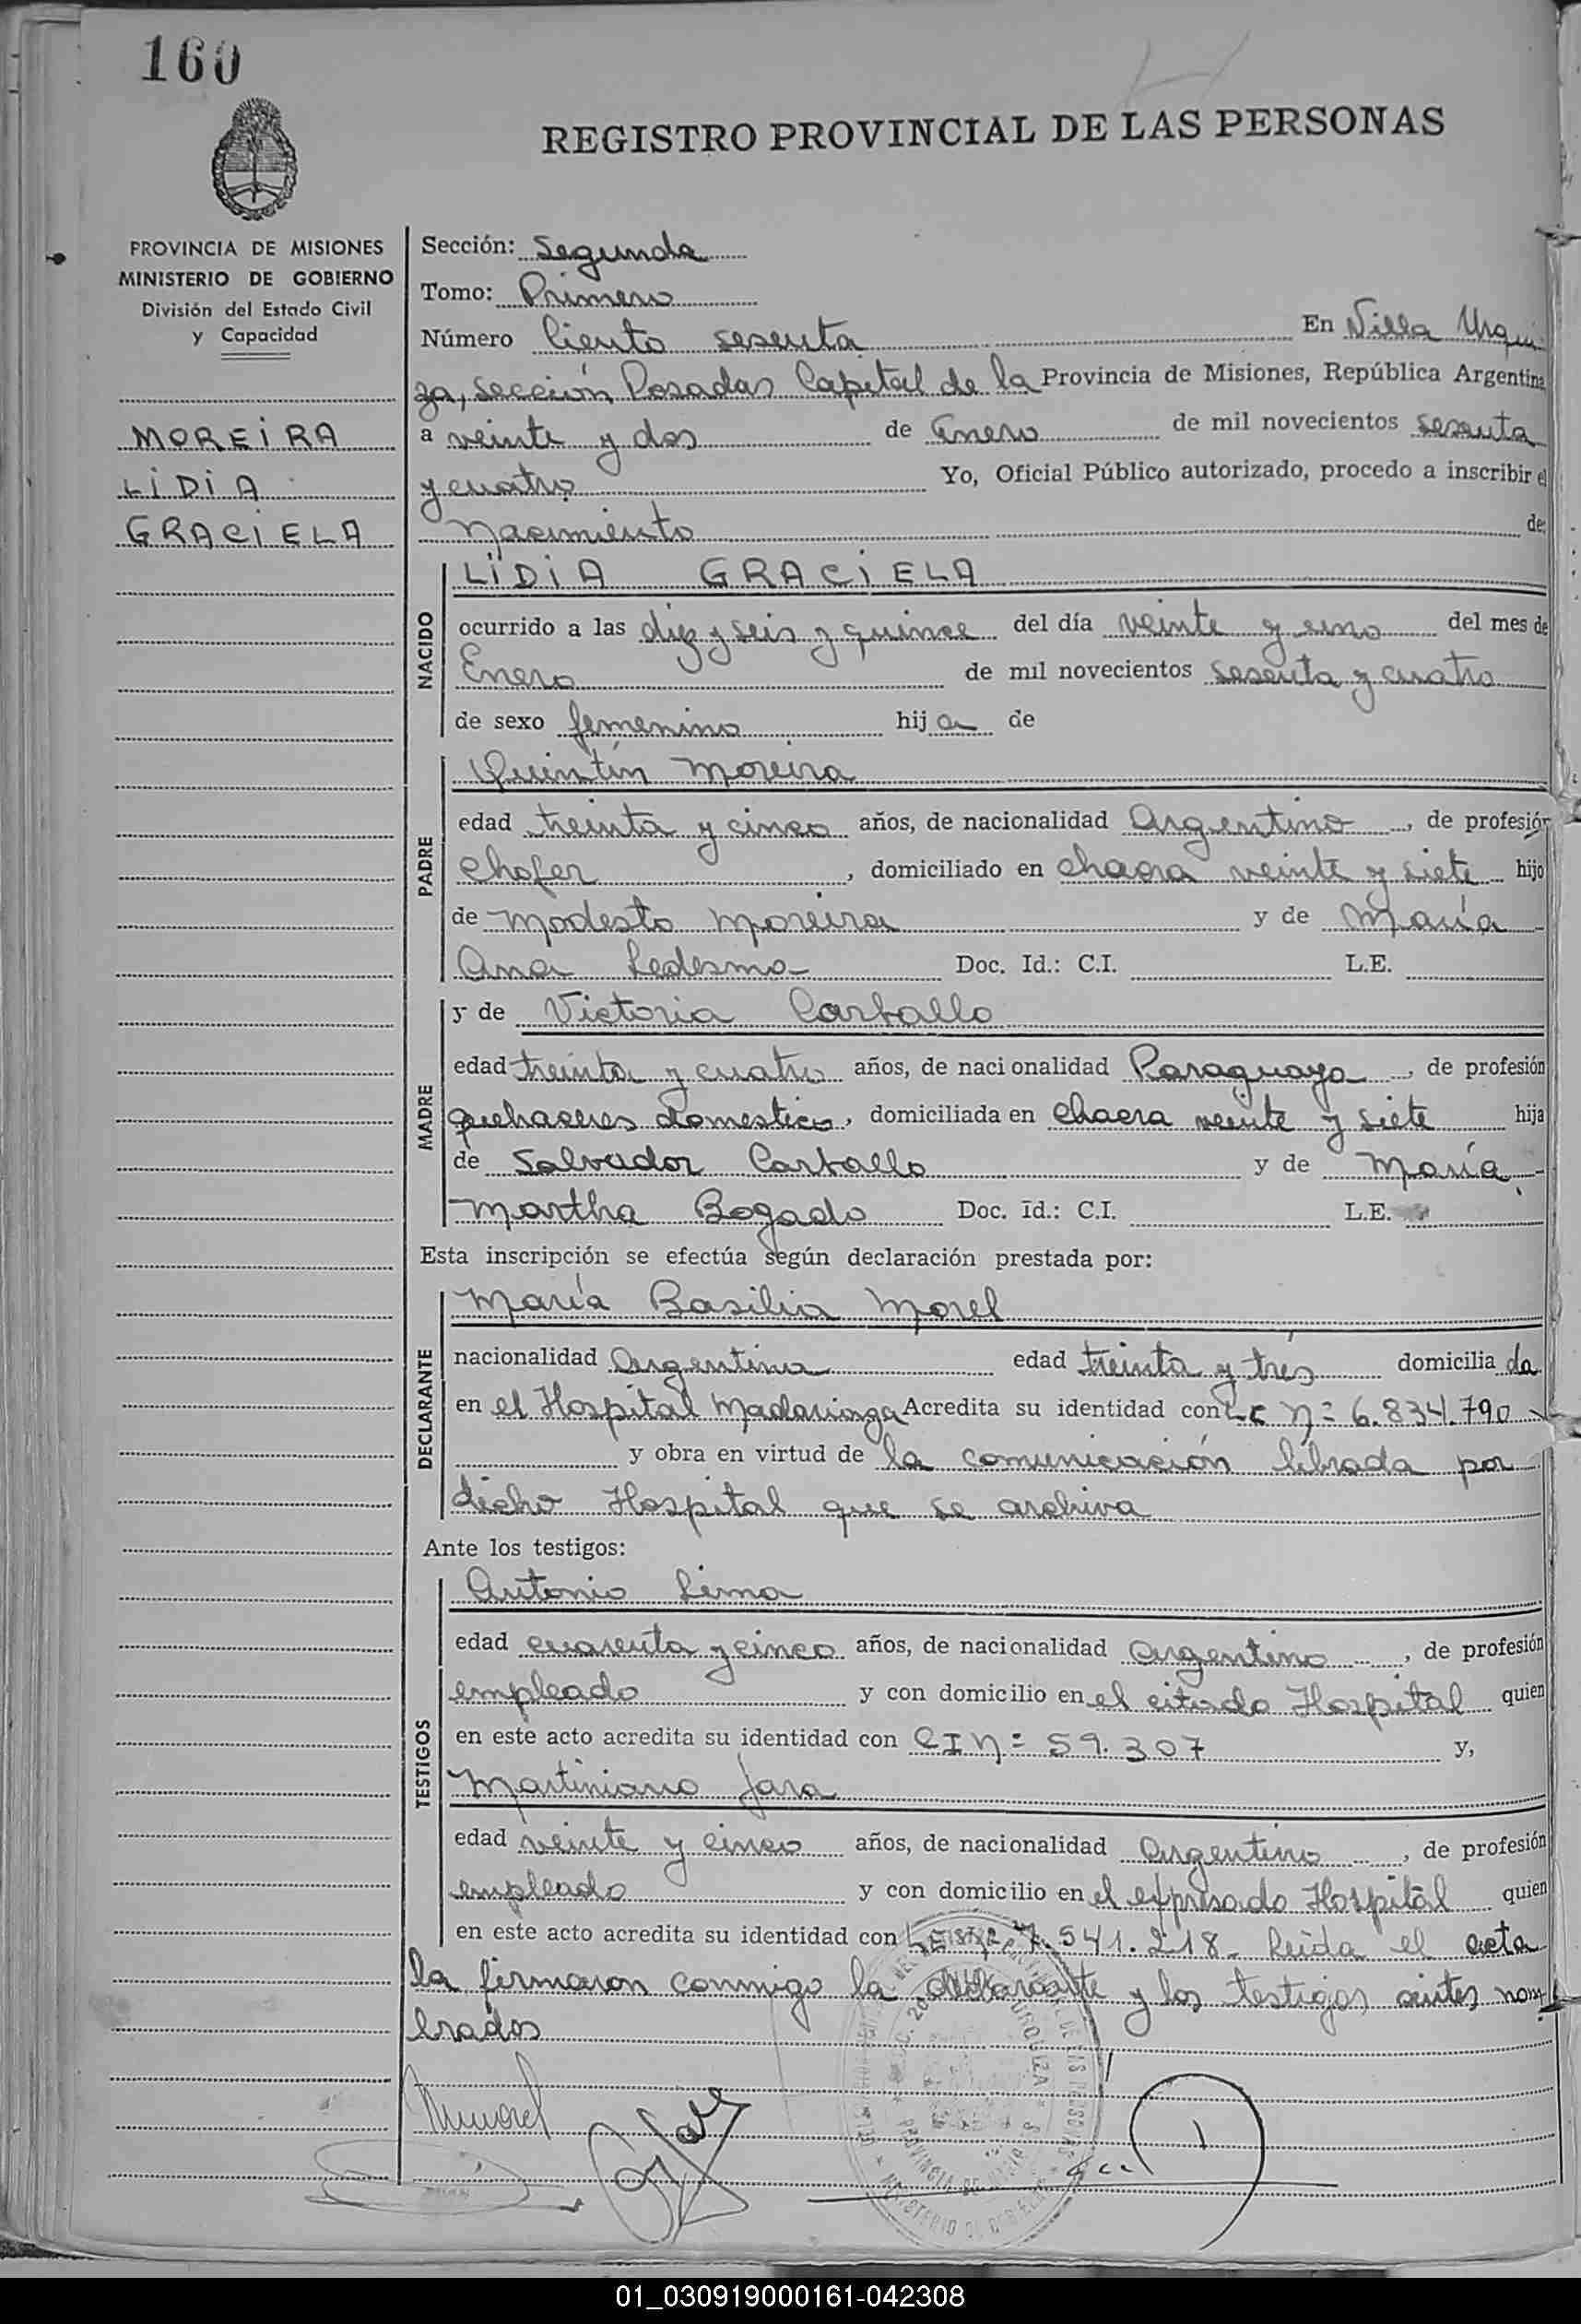 160
REGISTRO PROVINCIAL DE LAS PERSONAS
PROVINCIA DE MISIONES
MINISTERIO DE GOBIERNO
División del Estado Civil
y Capacidad
MOREIRA
LIDIA
GRACIELA
Sección: Segunda
Tomo: Primero
Número Ciento sesenta En Villa Urqui
za, sección Posadas Capital de la Provincia de Misiones, República Argentina
a veinte y dos de Enero de mil novecientos sesenta
y cuatro Yo, Oficial Público autorizado, procedo a inscribir el
Nacimiento de:
NACIDO
LIDIA GRACIELA
ocurrido a las diez y seis y quince del día veinte y uno del mes de
Enero de mil novecientos sesenta y cuatro
de sexo femenino hija de
PADRE
Quintín Moreira
edad treinta y cinco años, de nacionalidad Argentino, de profesión
chofer, domiciliado en chacra veinte y siete hijo
de Modesto Moreira y de María
Ana Ledesma Doc. Id.: C.I. L.E.
MADRE
y de Victoria Carballo
edad treinta y cuatro años, de nacionalidad Paraguaya, de profesión
quehaceres domestico, domiciliada en chacra veinte y siete hija
de Salvador Carballo y de María
Martha Bogado Doc. id.: C.I. L.E.
Esta inscripción se efectúa según declaración prestada por:
DECLARANTE
María Basilia Morel
nacionalidad Argentina edad treinta y trés domiciliada
en el Hospital Madariaga Acredita su identidad con LC Nº 6.834.790
y obra en virtud de la comunicación librada por
dicho Hospital que se archiva
Ante los testigos:
TESTIGOS
Antonio Lima
edad cuarenta y cinco años, de nacionalidad argentino, de profesión
empleado y con domicilio en el citado Hospital quien
en este acto acredita su identidad con CI Nº 59.307 y,
Martiniano Jara
edad veinte y cinco años, de nacionalidad Argentino, de profesión
empleado y con domicilio en el expresado Hospital quien
en este acto acredita su identidad con LE Nº 7.541.218. Leida el acta
la firmaron conmigo la declarante y los testigos antes nom
brados
01_030919000161-042308